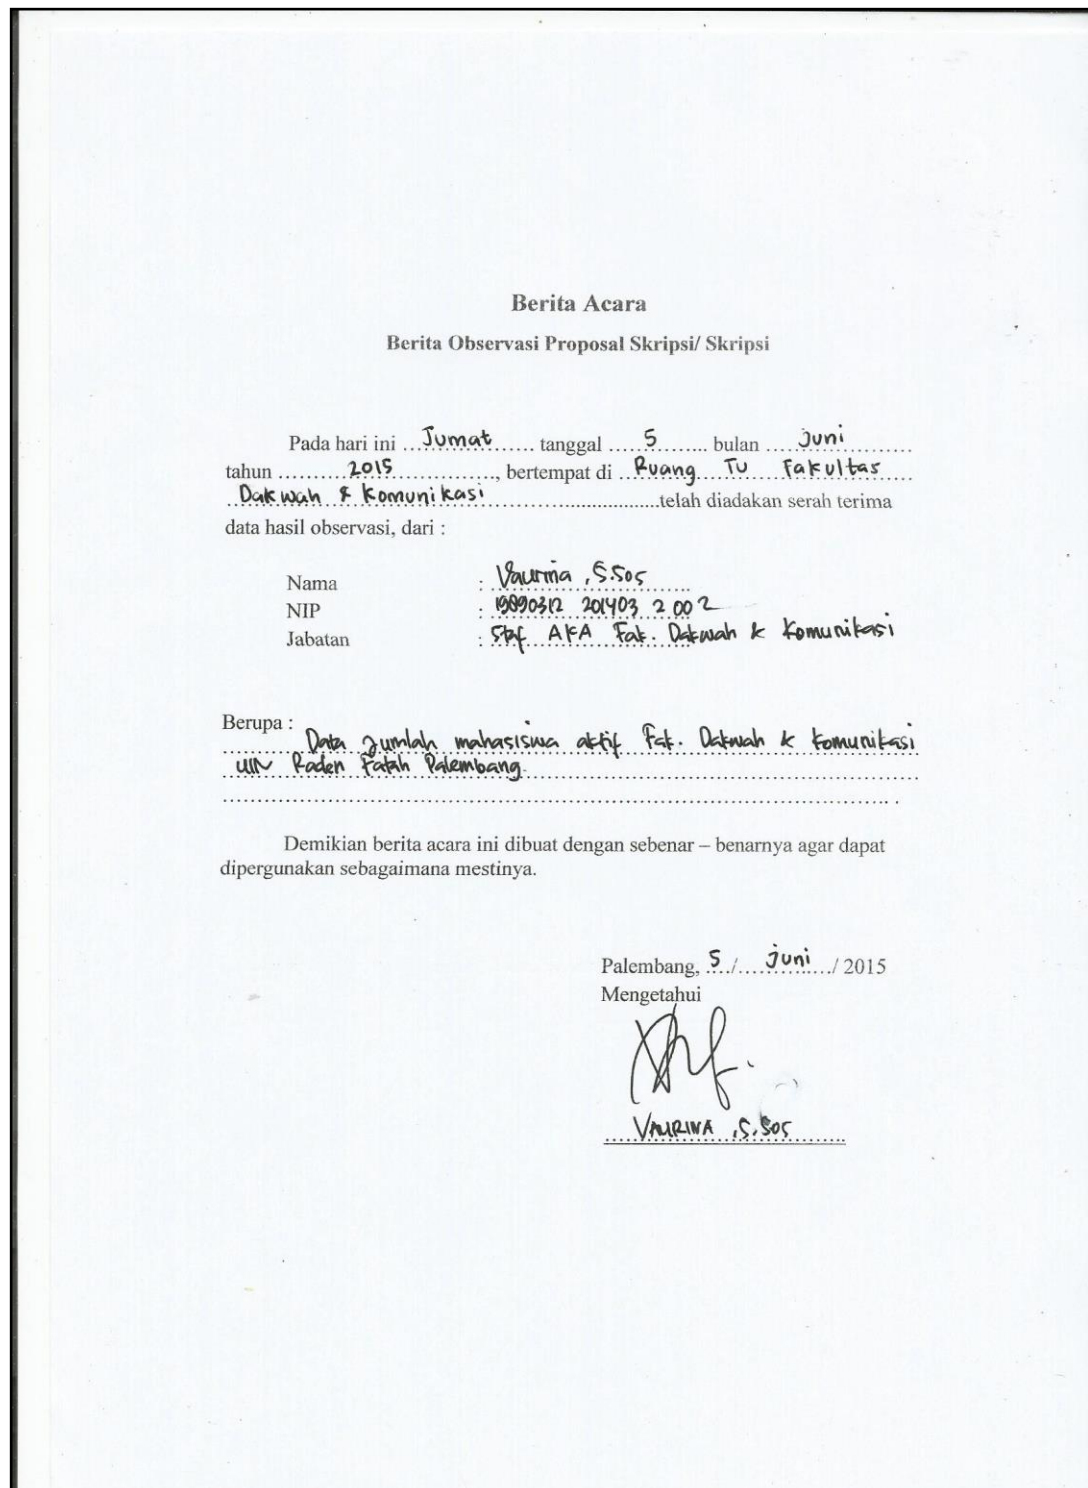 Berita Acara
Berita Observasi Proposal Skripsi/ Skripsi
Pada hari ini ...Jumat....... tanggal .....5......... bulan .....Juni...............
tahun ...........2015..................., bertempat di ..Ruang TU Fakultas
..Dakwah & Komunikasi...............................telah diadakan serah terima
data hasil observasi, dari :
Nama : Vaurina, S.Sos
NIP : 19890312 201403 2 002
Jabatan : Staf AKA Fak. Dakwah & Komunikasi
Berupa :
Data Jumlah mahasiswa aktif Fak. Dakwah & Komunikasi
UIN Raden Fatah Palembang.
Demikian berita acara ini dibuat dengan sebenar – benarnya agar dapat
dipergunakan sebagaimana mestinya.
Palembang, 5 / Juni / 2015
Mengetahui
VAURINA, S.Sos